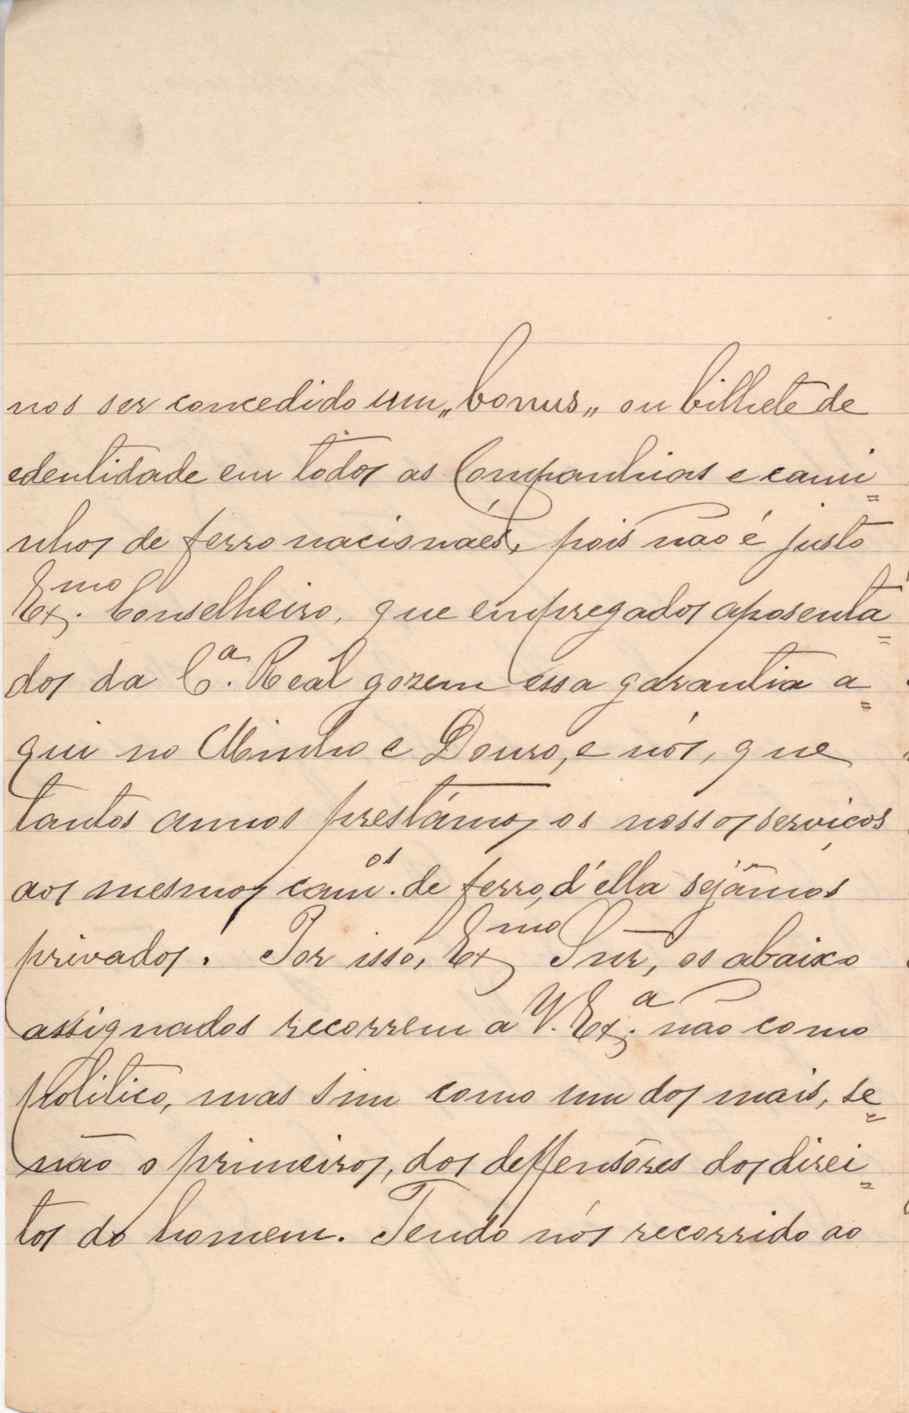 nos ser concedido um „bonus„ ou bilhete de
edentidade em tòdos as Companhias e cami=
nhos de ferro nacionáes, pois não é justo
Ex.mo Conselheiro, que empregados aposenta=
dos da C.a Real gozem essa garantia a=
qui no Minho e Douro, e nós, que
tantos annos prestámos os nossos serviços
aos mesmos cam.os de ferro, d'ella sejâmos
privados. Por isso, Ex.mo Snr, os abaixo
assignados recorrem a V. Ex.a não como
politico, mas sim como um dos mais, se=
não o primeiros, dos deffensôres dos direi=
tos do homem. Tendo nós recorrido ao